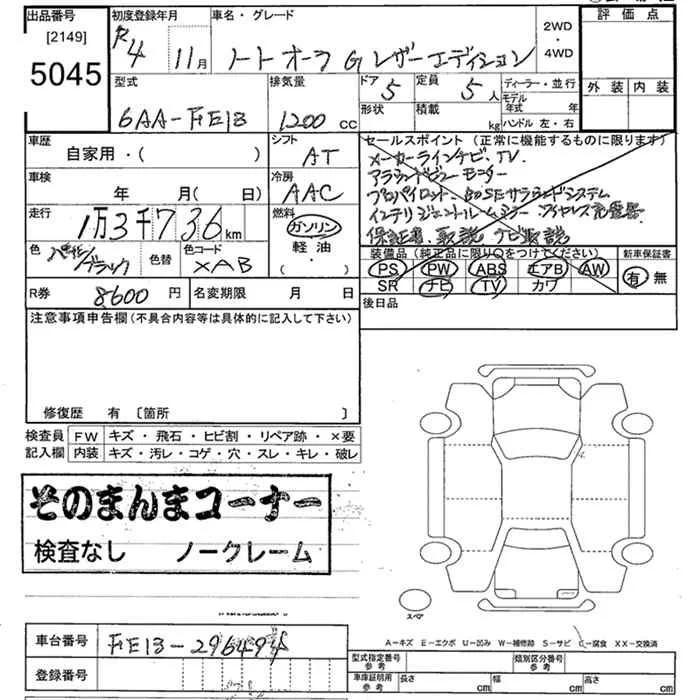 出品番号
[2149]
5045
初度登録年月
R4 11月
車名・グレード
ノート オーラ G レザーエディション
2WD
・
4WD
評価点
外装 内装
型式
6AA-FE13
排気量
1200 CC
ドア
5
定員
5 人
ディーラー・並行
モデル年式 年
形状
積載 kg
ハンドル 左・右
車歴
自家用・( )
シフト
AT
車検
年 月(日)
冷房
AAC
走行
1万3千736 km
燃料
ガソリン
軽油
・
( )
色
ブラック
色替
色コード
XAB
セールスポイント (正常に機能するものに限ります)
メーカーラインナビ、TV
アラウンドビューモニター
プロパイロット、BOSEサラウンドシステム
インテリジェントルームミラー ワイヤレス充電器
保証書、取説 ナビ取説
装備品(純正品に限り○をつけてください)
PS PW ABS エアB AW
SR ナビ TV カワ
新車保証書
有 無
R券 8600 円
名変期限 月 日
後日品
注意事項申告欄(不具合内容等は具体的に記入して下さい)
修復歴 有 〔箇所 〕
検査員
記入欄
FW キズ・飛石・ヒビ割・リペア跡・×要
内装 キズ・汚レ・コゲ・穴・スレ・キレ・破レ
そのまんまコーナー
検査なし ノークレーム
スペア
A-キズ E-エクボ U-凹み W-補修跡 S-サビ C-腐食 XX-交換済
車台番号 FE13-296494
登録番号
型式指定番号 参考
類別区分番号 参考
車庫証明用 参考
長さ cm
幅 cm
高さ cm